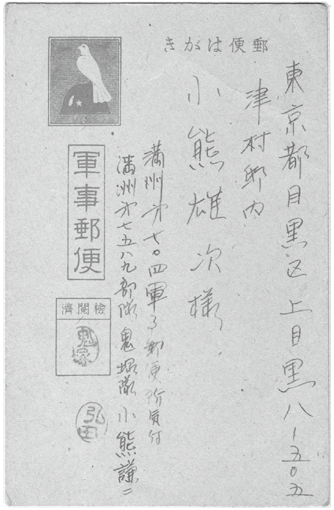 郵便はがき
東京都目黒区上目黒八ー五〇五
津村邸内
小熊雄次様
軍事郵便
検閲済
鬼塚
弘田
満洲第七〇四軍事郵便所気付
満洲第七五八九部隊鬼塚隊 小熊謙二